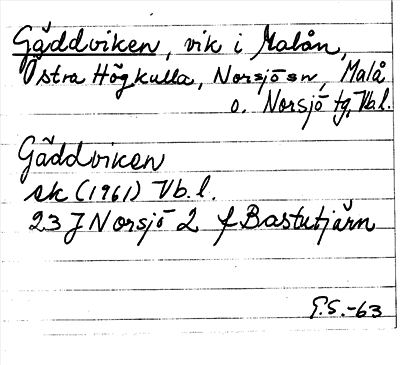 Gäddviken, vik i Malån,
Östra Högkulla, Norsjö sn, Malå
o. Norsjö tg, Vb.l.
Gäddviken
ek (1961) Vb.l.
23 J Norsjö 2 f Bastutjärn
G.S.-63